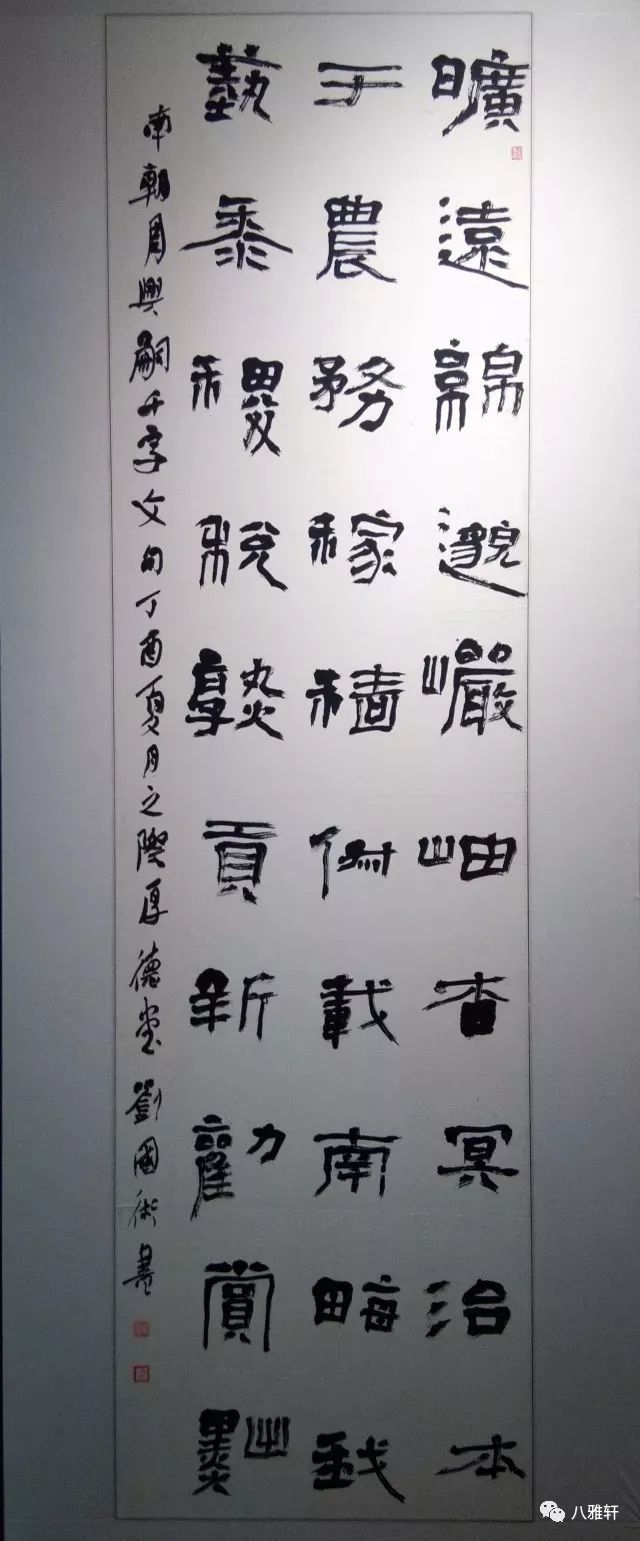 曠遠綿邈巖岫杳冥治本
于農務稼穡俶載南畮我
藝黍稷稅熟貢新勸賞黜
南朝周興嗣千字文句丁酉夏月之際厚德堂劉國術書
八雅轩